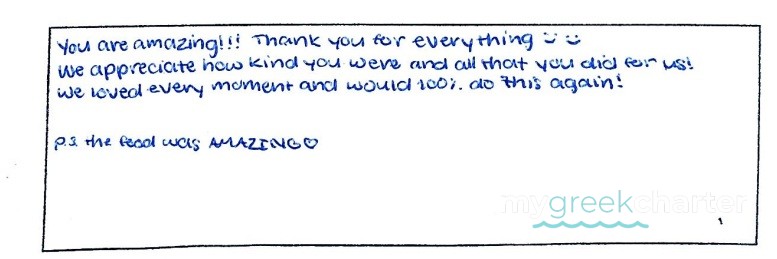 You are amazing!!! Thank you for everything ☺ ☺
We appreciate how kind you were and all that you did for us!
We loved every moment and would 100% do this again!
p.s. the food was AMAZING♡
mygreekcharter